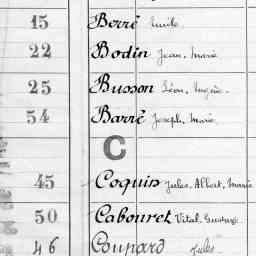 15 Berrê Emile.
22 Bodin Jean, Marie
25 Busson Léon, Eugène.
54 Barrê Joseph, Marie.
C
45 Coquin Jules, Albert, Marie
50 Cabouret Vital, Gustave
46 Coupard Jules